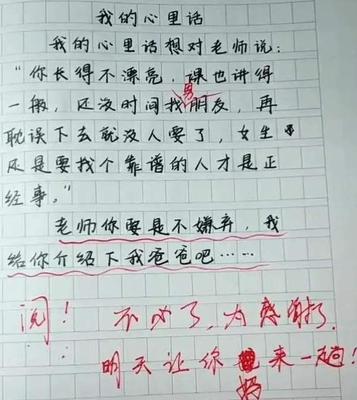 我的心里话
我的心里话想对老师说:
“你长得不漂亮,课也讲得
一般,还没时间找男朋友,再
耽误下去就没人要了,女生
还是要找个靠谱的人才是正
经事。”
老师你要是不嫌弃,我
给你介绍下我爸爸吧……
阅!不必了,太感谢了,
明天让你妈来一趟!